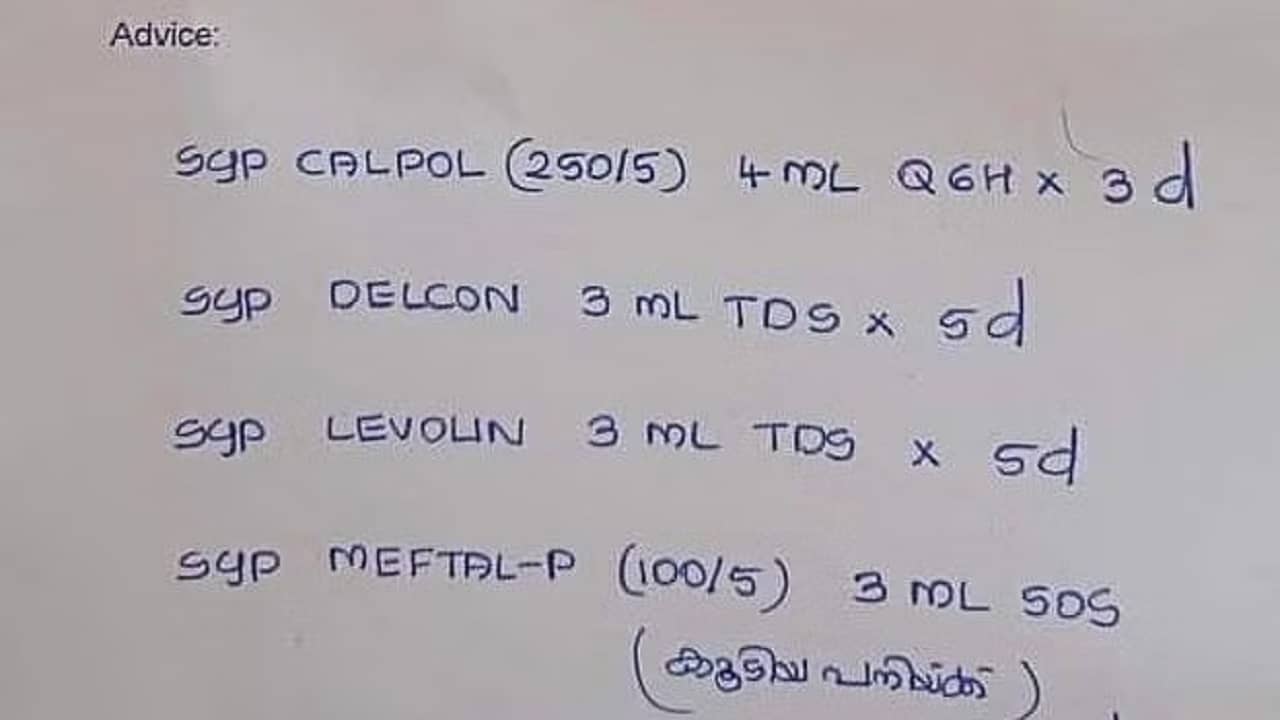 Advice:
syp CALPOL (250/5) 4 mL Q6H x 3d
syp DELCON 3 mL TDS x 5d
syp LEVOLIN 3 mL TDS x 5d
syp MEFTAL-P (100/5) 3 mL SOS
(കൂടിയ പനിയ്ക്ക്)